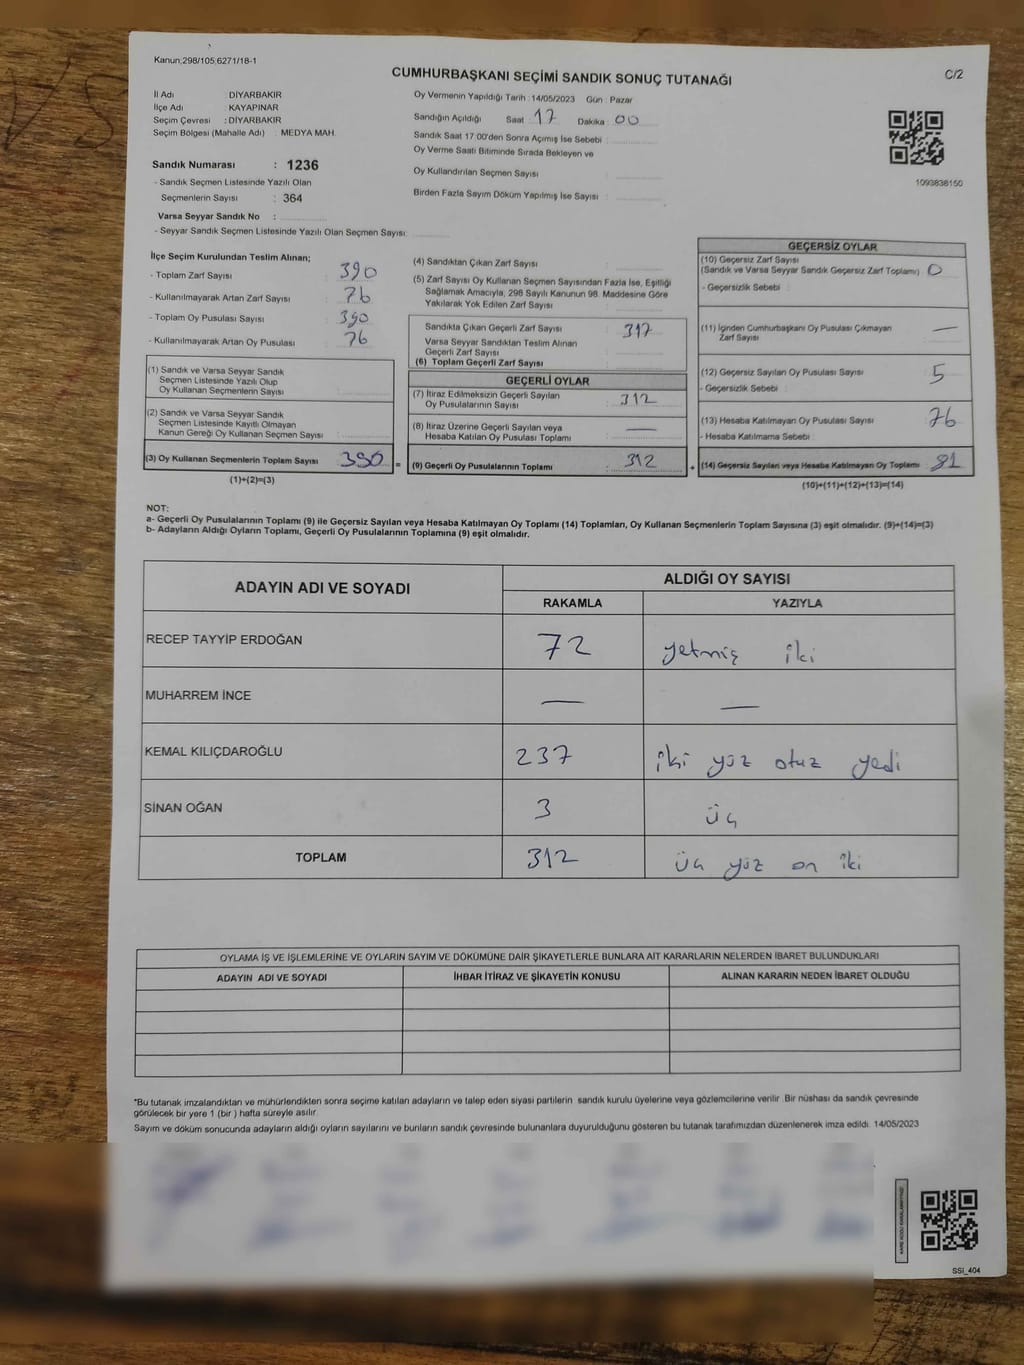 Kanun:298/105,6271/18-1
CUMHURBAŞKANI SEÇİMİ SANDIK SONUÇ TUTANAĞI
C/2
İl Adı : DİYARBAKIR
İlçe Adı : KAYAPINAR
Seçim Çevresi : DİYARBAKIR
Seçim Bölgesi (Mahalle Adı) : MEDYA MAH.
Sandık Numarası : 1236
- Sandık Seçmen Listesinde Yazılı Olan
Seçmenlerin Sayısı : 364
Varsa Seyyar Sandık No :
- Seyyar Sandık Seçmen Listesinde Yazılı Olan Seçmen Sayısı:
Oy Vermenin Yapıldığı Tarih : 14/05/2023 Gün : Pazar
Sandığın Açıldığı Saat : 17 Dakika : 00
Sandık Saat 17:00'den Sonra Açımış İse Sebebi :
Oy Verme Saati Bitiminde Sırada Bekleyen ve
Oy Kullandırılan Seçmen Sayısı :
Birden Fazla Sayım Döküm Yapılmış İse Sayısı :
1093838150
İlçe Seçim Kurulundan Teslim Alınan;
- Toplam Zarf Sayısı : 390
- Kullanılmayarak Artan Zarf Sayısı : 76
- Toplam Oy Pusulası Sayısı : 390
- Kullanılmayarak Artan Oy Pusulası : 76
(1) Sandık ve Varsa Seyyar Sandık
Seçmen Listesinde Yazılı Olup
Oy Kullanan Seçmenlerin Sayısı :
(2) Sandık ve Varsa Seyyar Sandık
Seçmen Listesinde Kayıtlı Olmayan
Kanun Gereği Oy Kullanan Seçmen Sayısı :
(3) Oy Kullanan Seçmenlerin Toplam Sayısı : 390 =
(1)+(2)=(3)
(4) Sandıktan Çıkan Zarf Sayısı :
(5) Zarf Sayısı Oy Kullanan Seçmen Sayısından Fazla İse, Eşitliği
Sağlamak Amacıyla, 298 Sayılı Kanunun 98. Maddesine Göre
Yakılarak Yok Edilen Zarf Sayısı :
Sandıkta Çıkan Geçerli Zarf Sayısı : 317
Varsa Seyyar Sandıktan Teslim Alınan
Geçerli Zarf Sayısı :
(6) Toplam Geçerli Zarf Sayısı :
GEÇERLİ OYLAR
(7) İtiraz Edilmeksizin Geçerli Sayılan
Oy Pusulalarının Sayısı : 312
(8) İtiraz Üzerine Geçerli Sayılan veya
Hesaba Katılan Oy Pusulası Toplamı : —
(9) Geçerli Oy Pusulalarının Toplamı : 312 +
GEÇERSİZ OYLAR
(10) Geçersiz Zarf Sayısı
(Sandık ve Varsa Seyyar Sandık Geçersiz Zarf Toplamı) : 0
- Geçersizlik Sebebi :
(11) İçinden Cumhurbaşkanı Oy Pusulası Çıkmayan
Zarf Sayısı : —
(12) Geçersiz Sayılan Oy Pusulası Sayısı : 5
- Geçersizlik Sebebi :
(13) Hesaba Katılmayan Oy Pusulası Sayısı : 76
- Hesaba Katılmama Sebebi :
(14) Geçersiz Sayılan veya Hesaba Katılmayan Oy Toplamı : 81
(10)+(11)+(12)+(13)=(14)
NOT:
a- Geçerli Oy Pusulalarının Toplamı (9) ile Geçersiz Sayılan veya Hesaba Katılmayan Oy Toplamı (14) Toplamları, Oy Kullanan Seçmenlerin Toplam Sayısına (3) eşit olmalıdır. (9)+(14)=(3)
b- Adayların Aldığı Oyların Toplamı, Geçerli Oy Pusulalarının Toplamına (9) eşit olmalıdır.
ADAYIN ADI VE SOYADI ALDIĞI OY SAYISI
RAKAMLA YAZIYLA
RECEP TAYYİP ERDOĞAN 72 yetmiş iki
MUHARREM İNCE — —
KEMAL KILIÇDAROĞLU 237 iki yüz otuz yedi
SİNAN OĞAN 3 üç
TOPLAM 312 üç yüz on iki
OYLAMA İŞ VE İŞLEMLERİNE VE OYLARIN SAYIM VE DÖKÜMÜNE DAİR ŞİKAYETLERLE BUNLARA AİT KARARLARIN NELERDEN İBARET BULUNDUKLARI
ADAYIN ADI VE SOYADI İHBAR İTİRAZ VE ŞİKAYETİN KONUSU ALINAN KARARIN NEDEN İBARET OLDUĞU
*Bu tutanak imzalandıktan ve mühürlendikten sonra seçime katılan adayların ve talep eden siyasi partilerin sandık kurulu üyelerine veya gözlemcilerine verilir. Bir nüshası da sandık çevresinde
görülecek bir yere 1 (bir ) hafta süreyle asılır.
Sayım ve döküm sonucunda adayların aldığı oyların sayılarını ve bunların sandık çevresinde bulunanlara duyurulduğunu gösteren bu tutanak tarafımızdan düzenlenerek imza edildi. 14/05/2023
SSİ_404